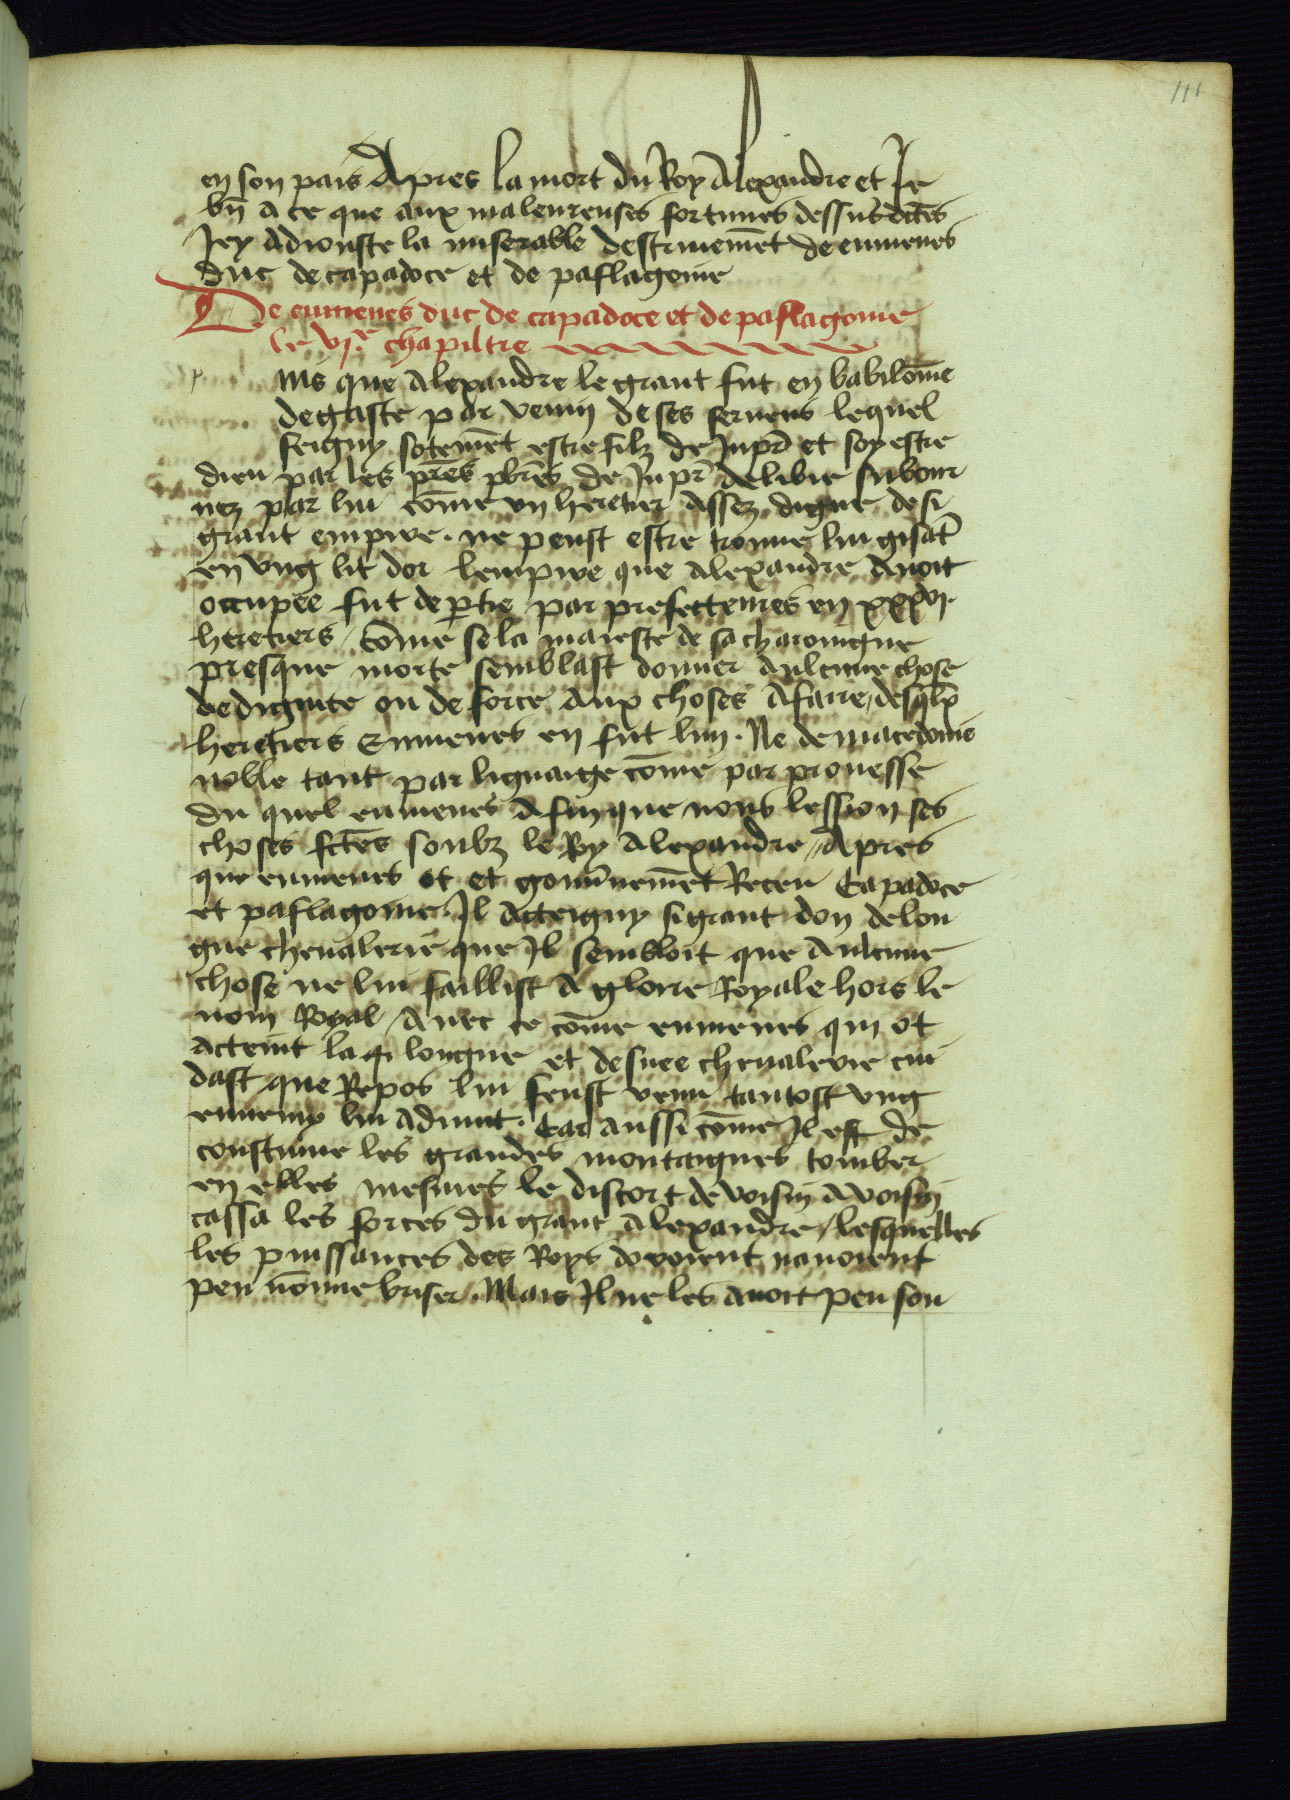 111
en son pais Apres la mort du Roy Alexandre et Je
vin̄ a ce que aux maleureuses fortunes dessus dictes
Jey adiouste la miserable destruiemēt de eumenes
duc de capadoce et de paflagonie
De eumenes duc de capadoce et de paflagonie
le vj.e chapiltre
Ms que Alexandre le grant fut en babilōnie
degaste par venin de ses servens lequel
feigny sotemēt estre filz de Jup̄r et soy estre
dieu par les p̄res pb̄res de Jup̄r de libie subour
nez par lui cōme vn heretier assez digne de si
grant empire . ne peust estre trouue lui gisāt
en vng lit dor lempire que Alexandre avoit
occupee fut departie par prefectemēs en xxxvj.
heretiers / cōme se la maieste de sa charoingne
presque morte semblast donner aulcune chose
de dignite ou de force aux choses a faire / desq̄lx
heretiers Eumenes en fut lun . Ne de macedonie
noble tant par lignaige cōme par prouesse
du quel eumenes Afin que nous lession ses
choses fc̄tes soubz le Roy Alexandre // Apres
que eumenes ot et gouv̄nemēt Receu Capadoce
et paflagonie . Jl acteigny si grant don de lon
gue cheualerie que Jl sembloit que Aulcune
chose ne lui faillist a gloire Royale hors le
nom Royal / Avec ce cōme eumenes qui ot
acteint la q̄ longue et desuee cheualerie cui
dast que Repos lui feust venu tantost vng
ennemy lui advint . Car aussi cōme Jl est de
coustume les grandes montaignes tomber
en elles mesmes le discort de voisin a voisin
cassa les forces du grant Alexandre / lesquelles
les puissances des Roys doroient navoient
peu nōmie briser . Mais Jl ne les avoit peu son